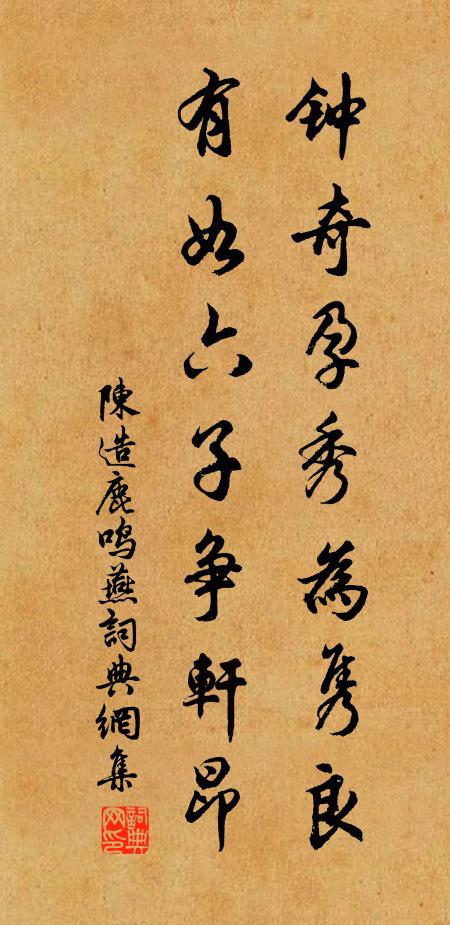 钟奇孕秀為隽良
有如六子争軒昂
陳造鹿鸣燕詞典網集
詞典網印